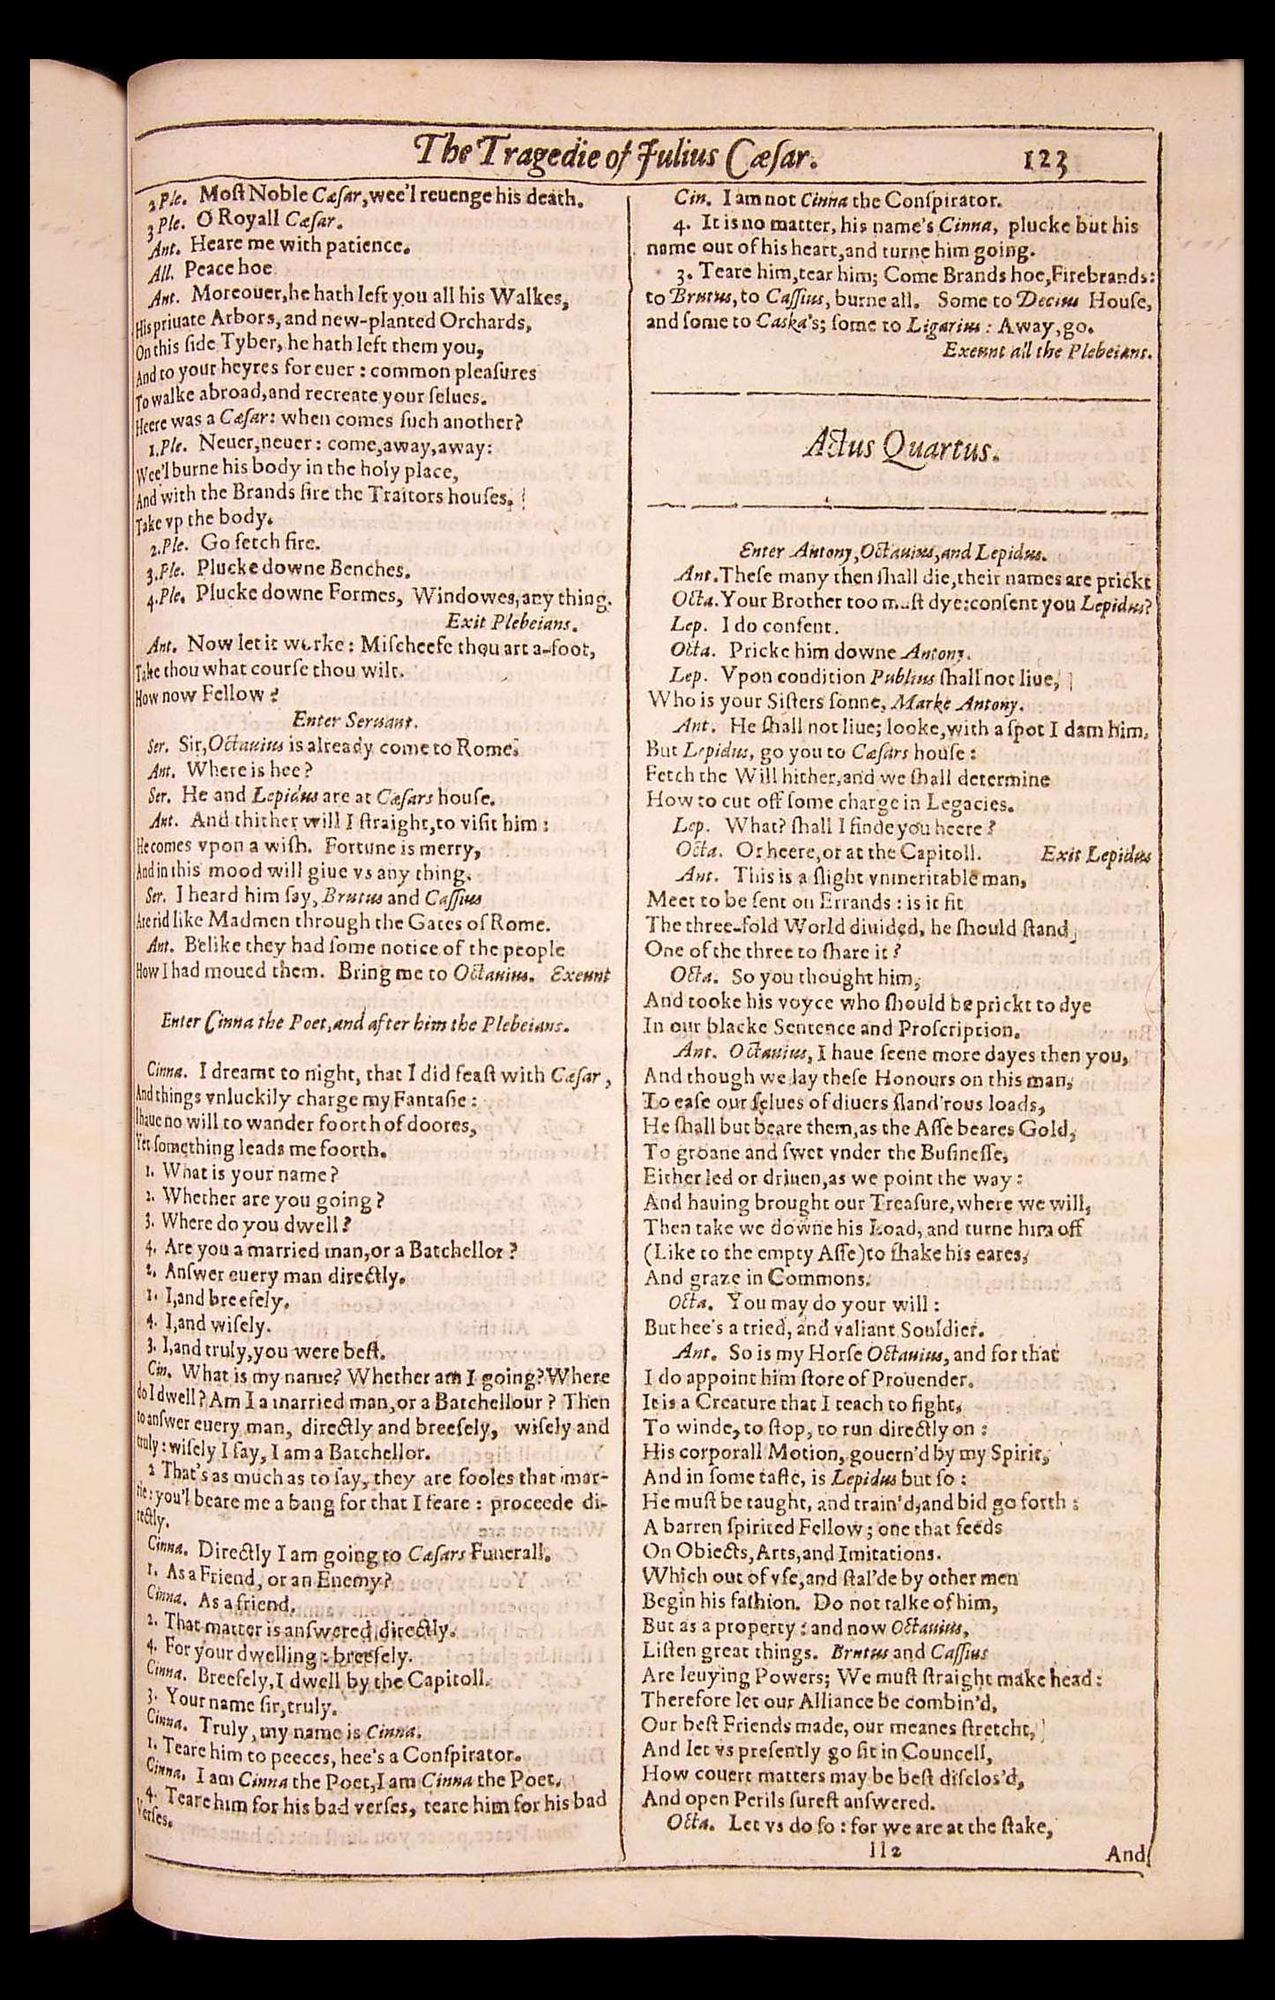 The Tragedie of Julius Cæsar. 123
2 Ple. Most Noble Cæsar, wee'l reuenge his death.
3 Ple. O Royall Cæsar.
Ant. Heare me with patience.
All. Peace hoe
Ant. Moreouer, he hath left you all his Walkes,
His priuate Arbors, and new-planted Orchards,
On this side Tyber, he hath left them you,
And to your heyres for euer : common pleasures
To walke abroad, and recreate your selues.
Heere was a Cæsar: when comes such another?
1.Ple. Neuer, neuer: come, away, away:
Wee'l burne his body in the holy place,
And with the Brands fire the Traitors houses.
Take vp the body.
2.Ple. Go fetch fire.
3.Ple. Plucke downe Benches.
4.Ple. Plucke downe Formes, Windowes, any thing.
Exit Plebeians.
Ant. Now let it worke: Mischeefe thou art a-foot,
Take thou what course thou wilt.
How now Fellow?
Enter Seruant.
Ser. Sir, Octauius is already come to Rome.
Ant. Where is hee?
Ser. He and Lepidus are at Cæsars house.
Ant. And thither will I straight, to visit him :
He comes vpon a wish. Fortune is merry,
And in this mood will giue vs any thing.
Ser. I heard him say, Brutus and Cassius
Are rid like Madmen through the Gates of Rome.
Ant. Belike they had some notice of the people
How I had moued them. Bring me to Octauius. Exeunt
Enter Cinna the Poet, and after him the Plebeians.
Cinna. I dreamt to night, that I did feast with Cæsar,
And things vnluckily charge my Fantasie :
I haue no will to wander foorth of doores,
Yet something leads me foorth.
1. What is your name?
2. Whether are you going?
3. Where do you dwell?
4. Are you a married man, or a Batchellor?
2. Answer euery man directly.
1. I, and breefely.
4. I, and wisely.
3. I, and truly, you were best.
Cin. What is my name? Whether am I going? Where
do I dwell? Am I a married man, or a Batchellour? Then
to answer euery man, directly and breefely, wisely and
truly : wisely I say, I am a Batchellor.
2 That's as much as to say, they are fooles that mar-
rie: you'l beare me a bang for that I feare : proceede di-
rectly.
Cinna. Directly I am going to Cæsars Funerall.
1. As a Friend, or an Enemy?
Cinna. As a friend.
2. That matter is answered directly.
4. For your dwelling : breefely.
Cinna. Breefely, I dwell by the Capitoll.
3. Your name sir, truly.
Cinna. Truly, my name is Cinna.
1. Teare him to peeces, hee's a Conspirator.
Cinna. I am Cinna the Poet, I am Cinna the Poet.
4. Teare him for his bad verses, teare him for his bad
Verses.
Cin. I am not Cinna the Conspirator.
4. It is no matter, his name's Cinna, plucke but his
name out of his heart, and turne him going.
3. Teare him, tear him; Come Brands hoe, Firebrands:
to Brutus, to Cassius, burne all. Some to Decius House,
and some to Caska's; some to Ligarius : Away, go.
Exeunt all the Plebeians.
Actus Quartus.
Enter Antony, Octauius, and Lepidus.
Ant. These many then shall die, their names are prickt
Octa. Your Brother too must dye: consent you Lepidus?
Lep. I do consent.
Octa. Pricke him downe Antony.
Lep. Vpon condition Publius shall not liue,
Who is your Sisters sonne, Marke Antony.
Ant. He shall not liue; looke, with a spot I dam him.
But Lepidus, go you to Cæsars house :
Fetch the Will hither, and we shall determine
How to cut off some charge in Legacies.
Lep. What? shall I finde you heere?
Octa. Or heere, or at the Capitoll. Exit Lepidus
Ant. This is a slight vnmeritable man,
Meet to be sent on Errands : is it fit
The three-fold World diuided, he should stand
One of the three to share it?
Octa. So you thought him,
And tooke his voyce who should be prickt to dye
In our blacke Sentence and Proscription.
Ant. Octauius, I haue seene more dayes then you,
And though we lay these Honours on this man,
To ease our selues of diuers sland'rous loads,
He shall but beare them, as the Asse beares Gold,
To groane and swet vnder the Businesse,
Either led or driuen, as we point the way :
And hauing brought our Treasure, where we will,
Then take we downe his Load, and turne him off
(Like to the empty Asse) to shake his eares,
And graze in Commons.
Octa. You may do your will :
But hee's a tried, and valiant Souldier.
Ant. So is my Horse Octauius, and for that
I do appoint him store of Prouender.
It is a Creature that I teach to fight,
To winde, to stop, to run directly on :
His corporall Motion, gouern'd by my Spirit,
And in some taste, is Lepidus but so :
He must be taught, and train'd, and bid go forth :
A barren spirited Fellow; one that feeds
On Obiects, Arts, and Imitations.
Which out of vse, and stal'de by other men
Begin his fashion. Do not talke of him,
But as a property : and now Octauius,
Listen great things. Brutus and Cassius
Are leuying Powers; We must straight make head:
Therefore let our Alliance be combin'd,
Our best Friends made, our meanes stretcht,
And let vs presently go sit in Councell,
How couert matters may be best disclos'd,
And open Perils surest answered.
Octa. Let vs do so : for we are at the stake,
ll2 And